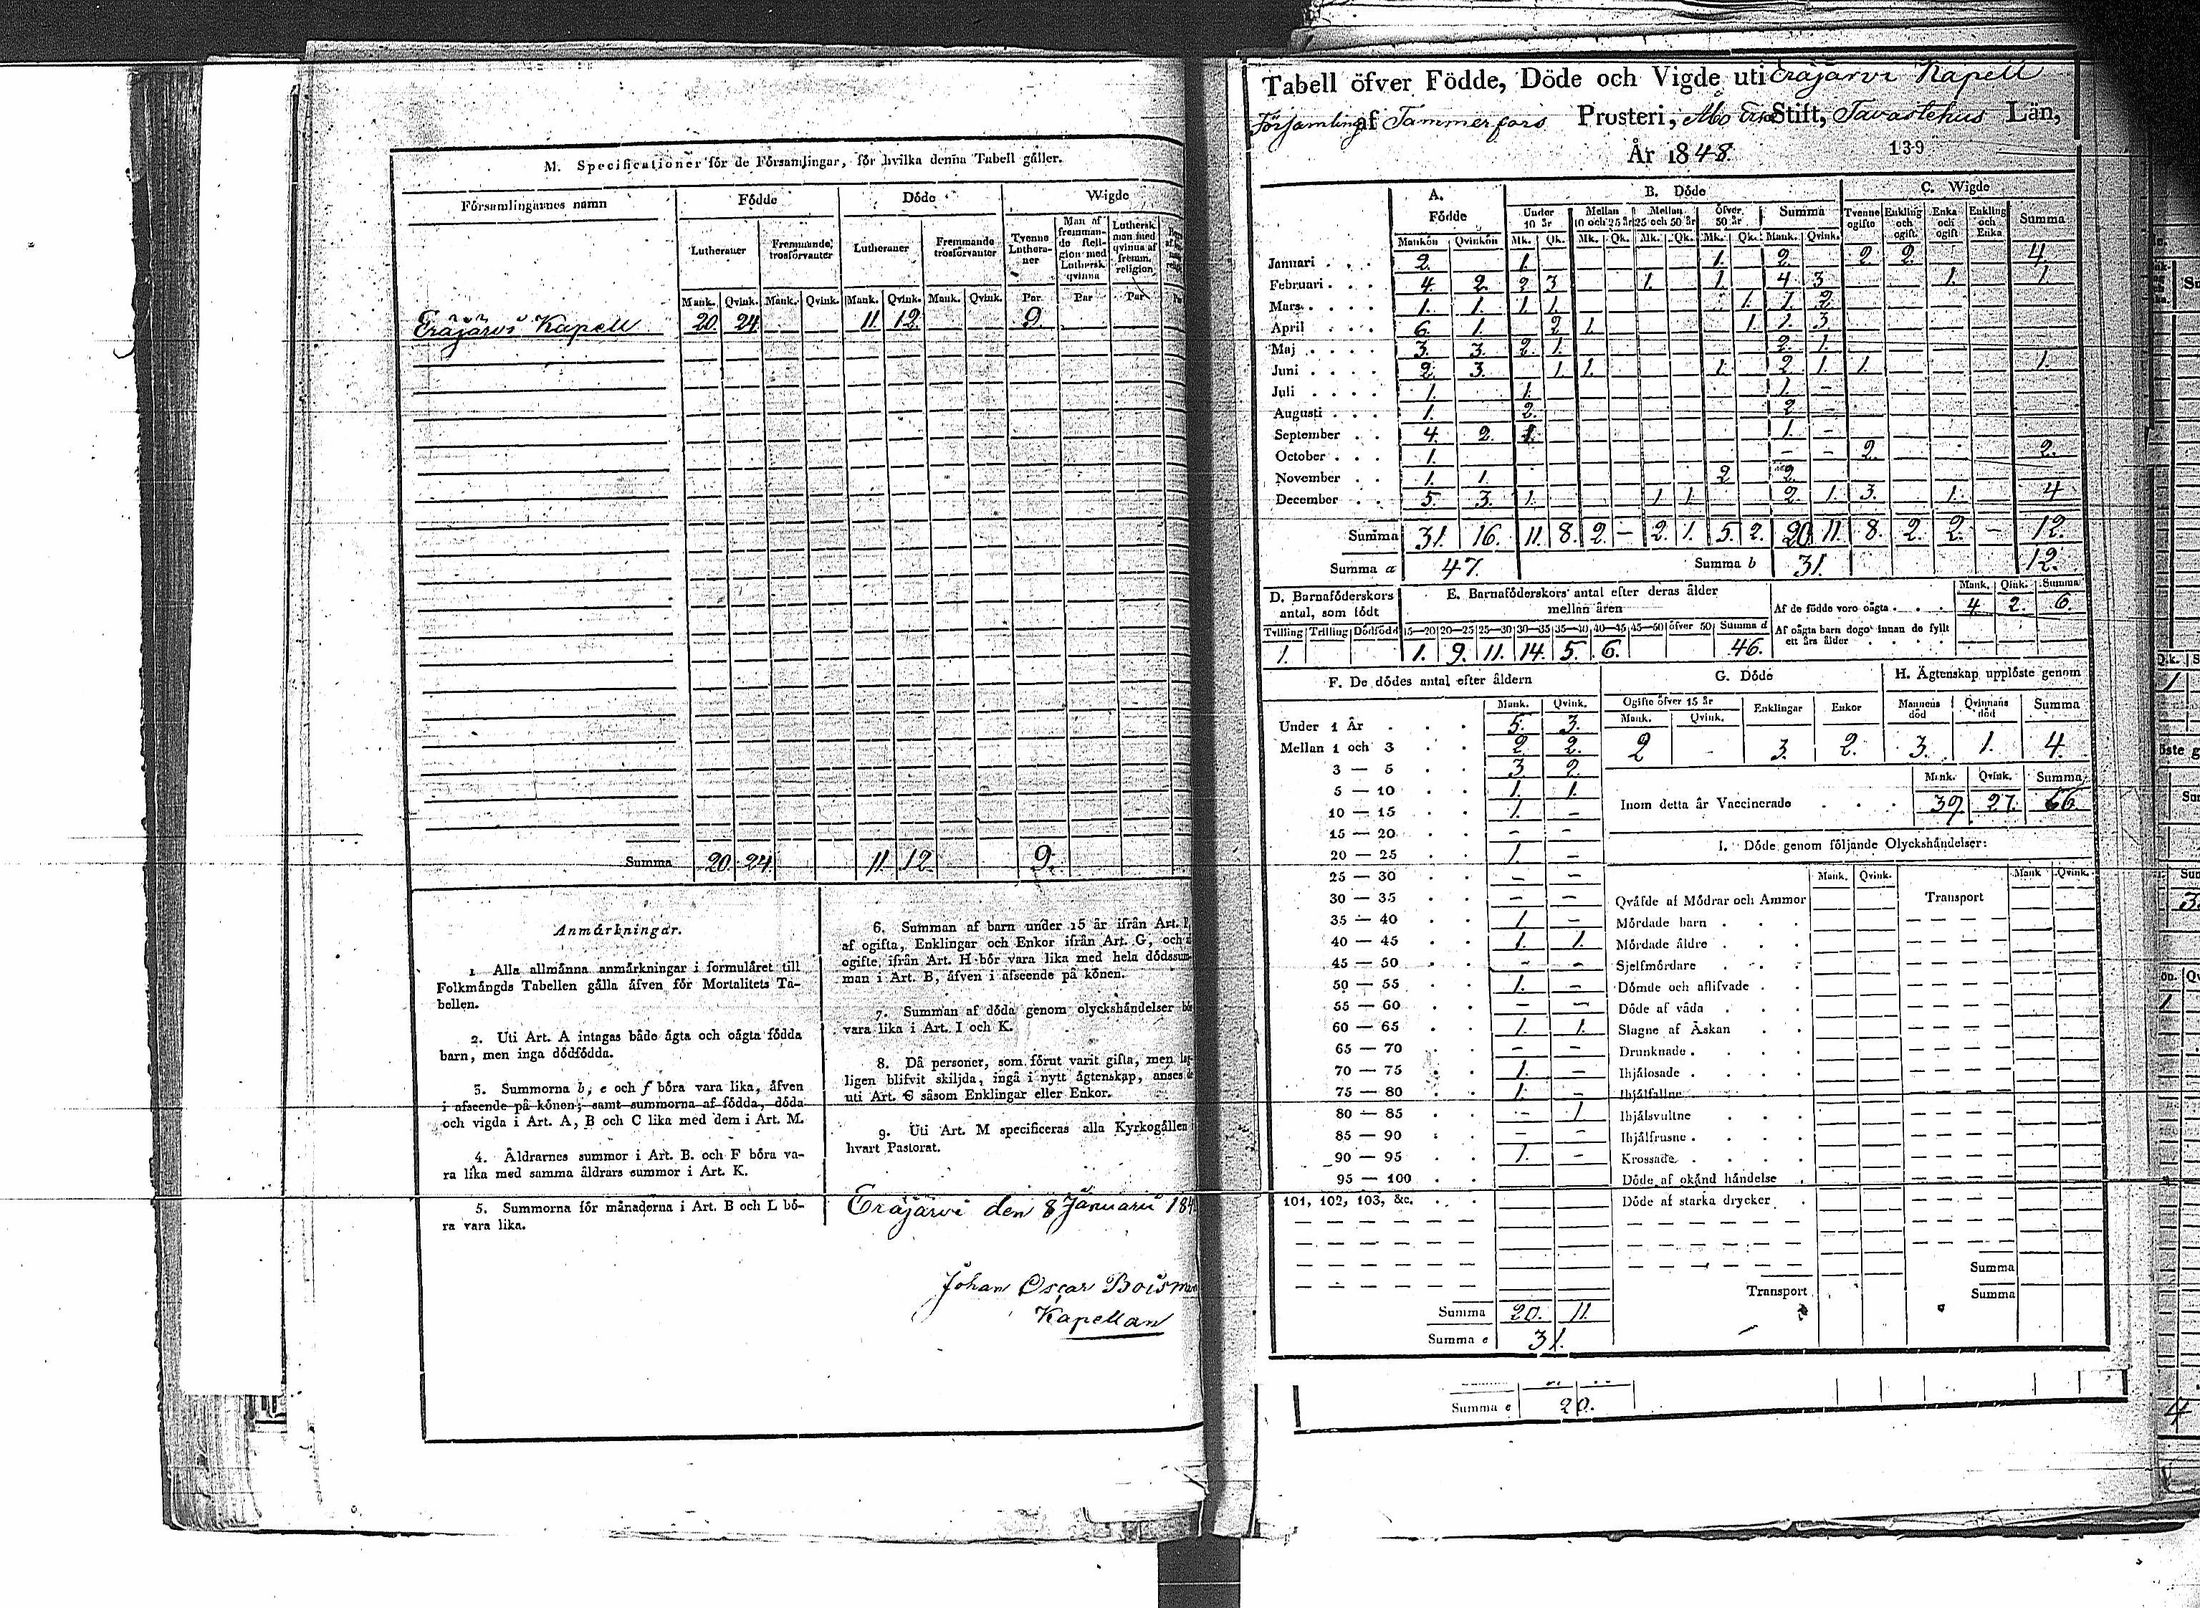 M. Specificationer för de Församlingar, för hvilka denna Tabell gäller.
Församlingarnes namn
Födde
Döde
Wigde
Lutheraner
Fremmande trosförvanter
Lutheraner
Fremmande trosförvanter
Tvenne Lutheraner
Man af fremmande Religion med Luthersk qvinna
Luthersk man med qvinna af fremm. religion
Mank. Qvink. Mank. Qvink. Mank. Qvink. Mank. Qvink. Par Par Par
Eräjärvi Kapell 20. 24. 11. 12. 9.
Summa 20. 24. 11. 12. 9.
Anmärkningar.
1. Alla allmänna anmärkningar i formuläret till
Folkmängds Tabellen gälla äfven för Mortalitets Ta-
bellen.
2. Uti Art. A intagas både ägta och oägta födda
barn, men inga dödfödda.
3. Summorna b, e och f böra vara lika, äfven
i afseende på könen; samt summorna af födda, döda
och vigda i Art. A, B och C lika med dem i Art. M.
4. Äldrarnes summor i Art. B. och F böra va-
ra lika med samma äldrars summor i Art. K.
5. Summorna för månaderna i Art. B och L bö-
ra vara lika.
6. Summan af barn under 15 år ifrån Art. F,
af ogifta, Enklingar och Enkor ifrån Art. G, och
ogifte, ifrån Art. H bör vara lika med hela dödssum-
man i Art. B, äfven i afseende på könen.
7. Summan af döda genom olyckshändelser bör
vara lika i Art. I och K.
8. Då personer, som förut varit gifta, men lag-
ligen blifvit skiljda, ingå i nytt ägtenskap, anses de
uti Art. C såsom Enklingar eller Enkor.
9. Uti Art. M specificeras alla Kyrkogällen i
hvart Pastorat.
Eräjärvi den 8 Januarii 184
Johan Oscar Boisman
Kapellan
Tabell öfver Födde, Döde och Vigde uti Eräjärvi Kapell
Församling af Tammerfors Prosteri, Åbo Erke Stift, Tavastehus Län,
År 1848. 139
A. Födde
B. Döde
C. Wigde
Under 10 år Mellan 10 och 25 år Mellan 25 och 50 år Öfver 50 år Summa
Tvenne ogifte Enkling och ogift Enka och ogift Enkling och Enka Summa
Mankön Qvinkön Mk. Qk. Mk. Qk. Mk. Qk. Mk. Qk. Mank. Qvink.
Januari 2. 1. 1. 2. 2. 2. 4.
Februari 4. 2. 2 3 1. 1. 4 3 1. 1.
Mars 1. 1. 1. 1. 1. 1. 2
April 6. 1. 2 1. 1. 1. 3.
Maj 3. 3. 2. 1. 2. 1.
Juni 2. 3. 1. 1. 1. 2 1. 1. 1.
Juli 1. 1. 1. -
Augusti 1. 2. 2 -
September 4. 2. 1. 1. -
October 1. - - 2. 2.
November 1. 1. 2 2.
December 5. 3. 1. 1 1. 2 1. 3. 1. 4
Summa 31. 16. 11. 8. 2. - 2. 1. 5. 2. 20 11. 8. 2. 2. - 12.
Summa a 47. Summa b 31. 12.
D. Barnaföderskors antal, som födt
Tvilling Trilling Dödfödd
1.
E. Barnaföderskors antal efter deras ålder mellan åren
15—20 20—25 25—30 30—35 35—40 40—45 45—50 öfver 50 Summa d
1. 9. 11. 14. 5. 6. 46.
Mank. Qink. Summa
Af de födde voro oägta 4 2. 6.
Af oägta barn dogo innan de fyllt
ett års ålder
F. De dödes antal efter åldern
Mank. Qvink.
Under 1 År 5. 3.
Mellan 1 och 3 2 2.
3 — 5 3 2.
5 — 10 1. 1.
10 — 15 1. -
15 — 20 - -
20 — 25 1. -
25 — 30 - -
30 — 35 - -
35 — 40 1 -
40 — 45 1. 1.
45 — 50 - -
50 — 55 1. -
55 — 60 - -
60 — 65 1. 1.
65 — 70 - -
70 — 75 1. -
75 — 80 1. -
80 — 85 - 1
85 — 90 - -
90 — 95 1. -
95 — 100
101, 102, 103, &c.
Summa 20. 11.
Summa e 31.
G. Döde
Ogifte öfver 15 år Enklingar Enkor
Mank. Qvink.
2 - 3. 2.
H. Ägtenskap upplöste genom
Mannens död Qvinnans död Summa
3. 1. 4.
Mank. Qvink. Summa
Inom detta år Vaccinerade 39. 27. 66.
I. Döde genom följande Olyckshändelser:
Mank. Qvink. Mank Qvink.
Qväfde af Mödrar och Ammor Transport
Mördade barn
Mördade äldre
Sjelfmördare
Dömde och aflifvade
Döde af våda
Slagne af Åskan
Drunknade
Ihjälosade
Ihjälfallne
Ihjälsvultne
Ihjälfrusne
Krossade
Döde af okänd händelse
Döde af starka drycker
Summa
Transport Summa
Summa e 20.